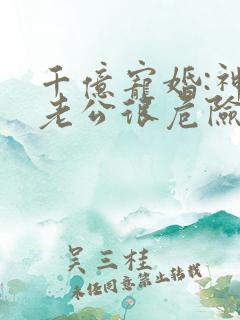 千億寵婚:神
老公很危險
吴三桂
未经同意禁止转载